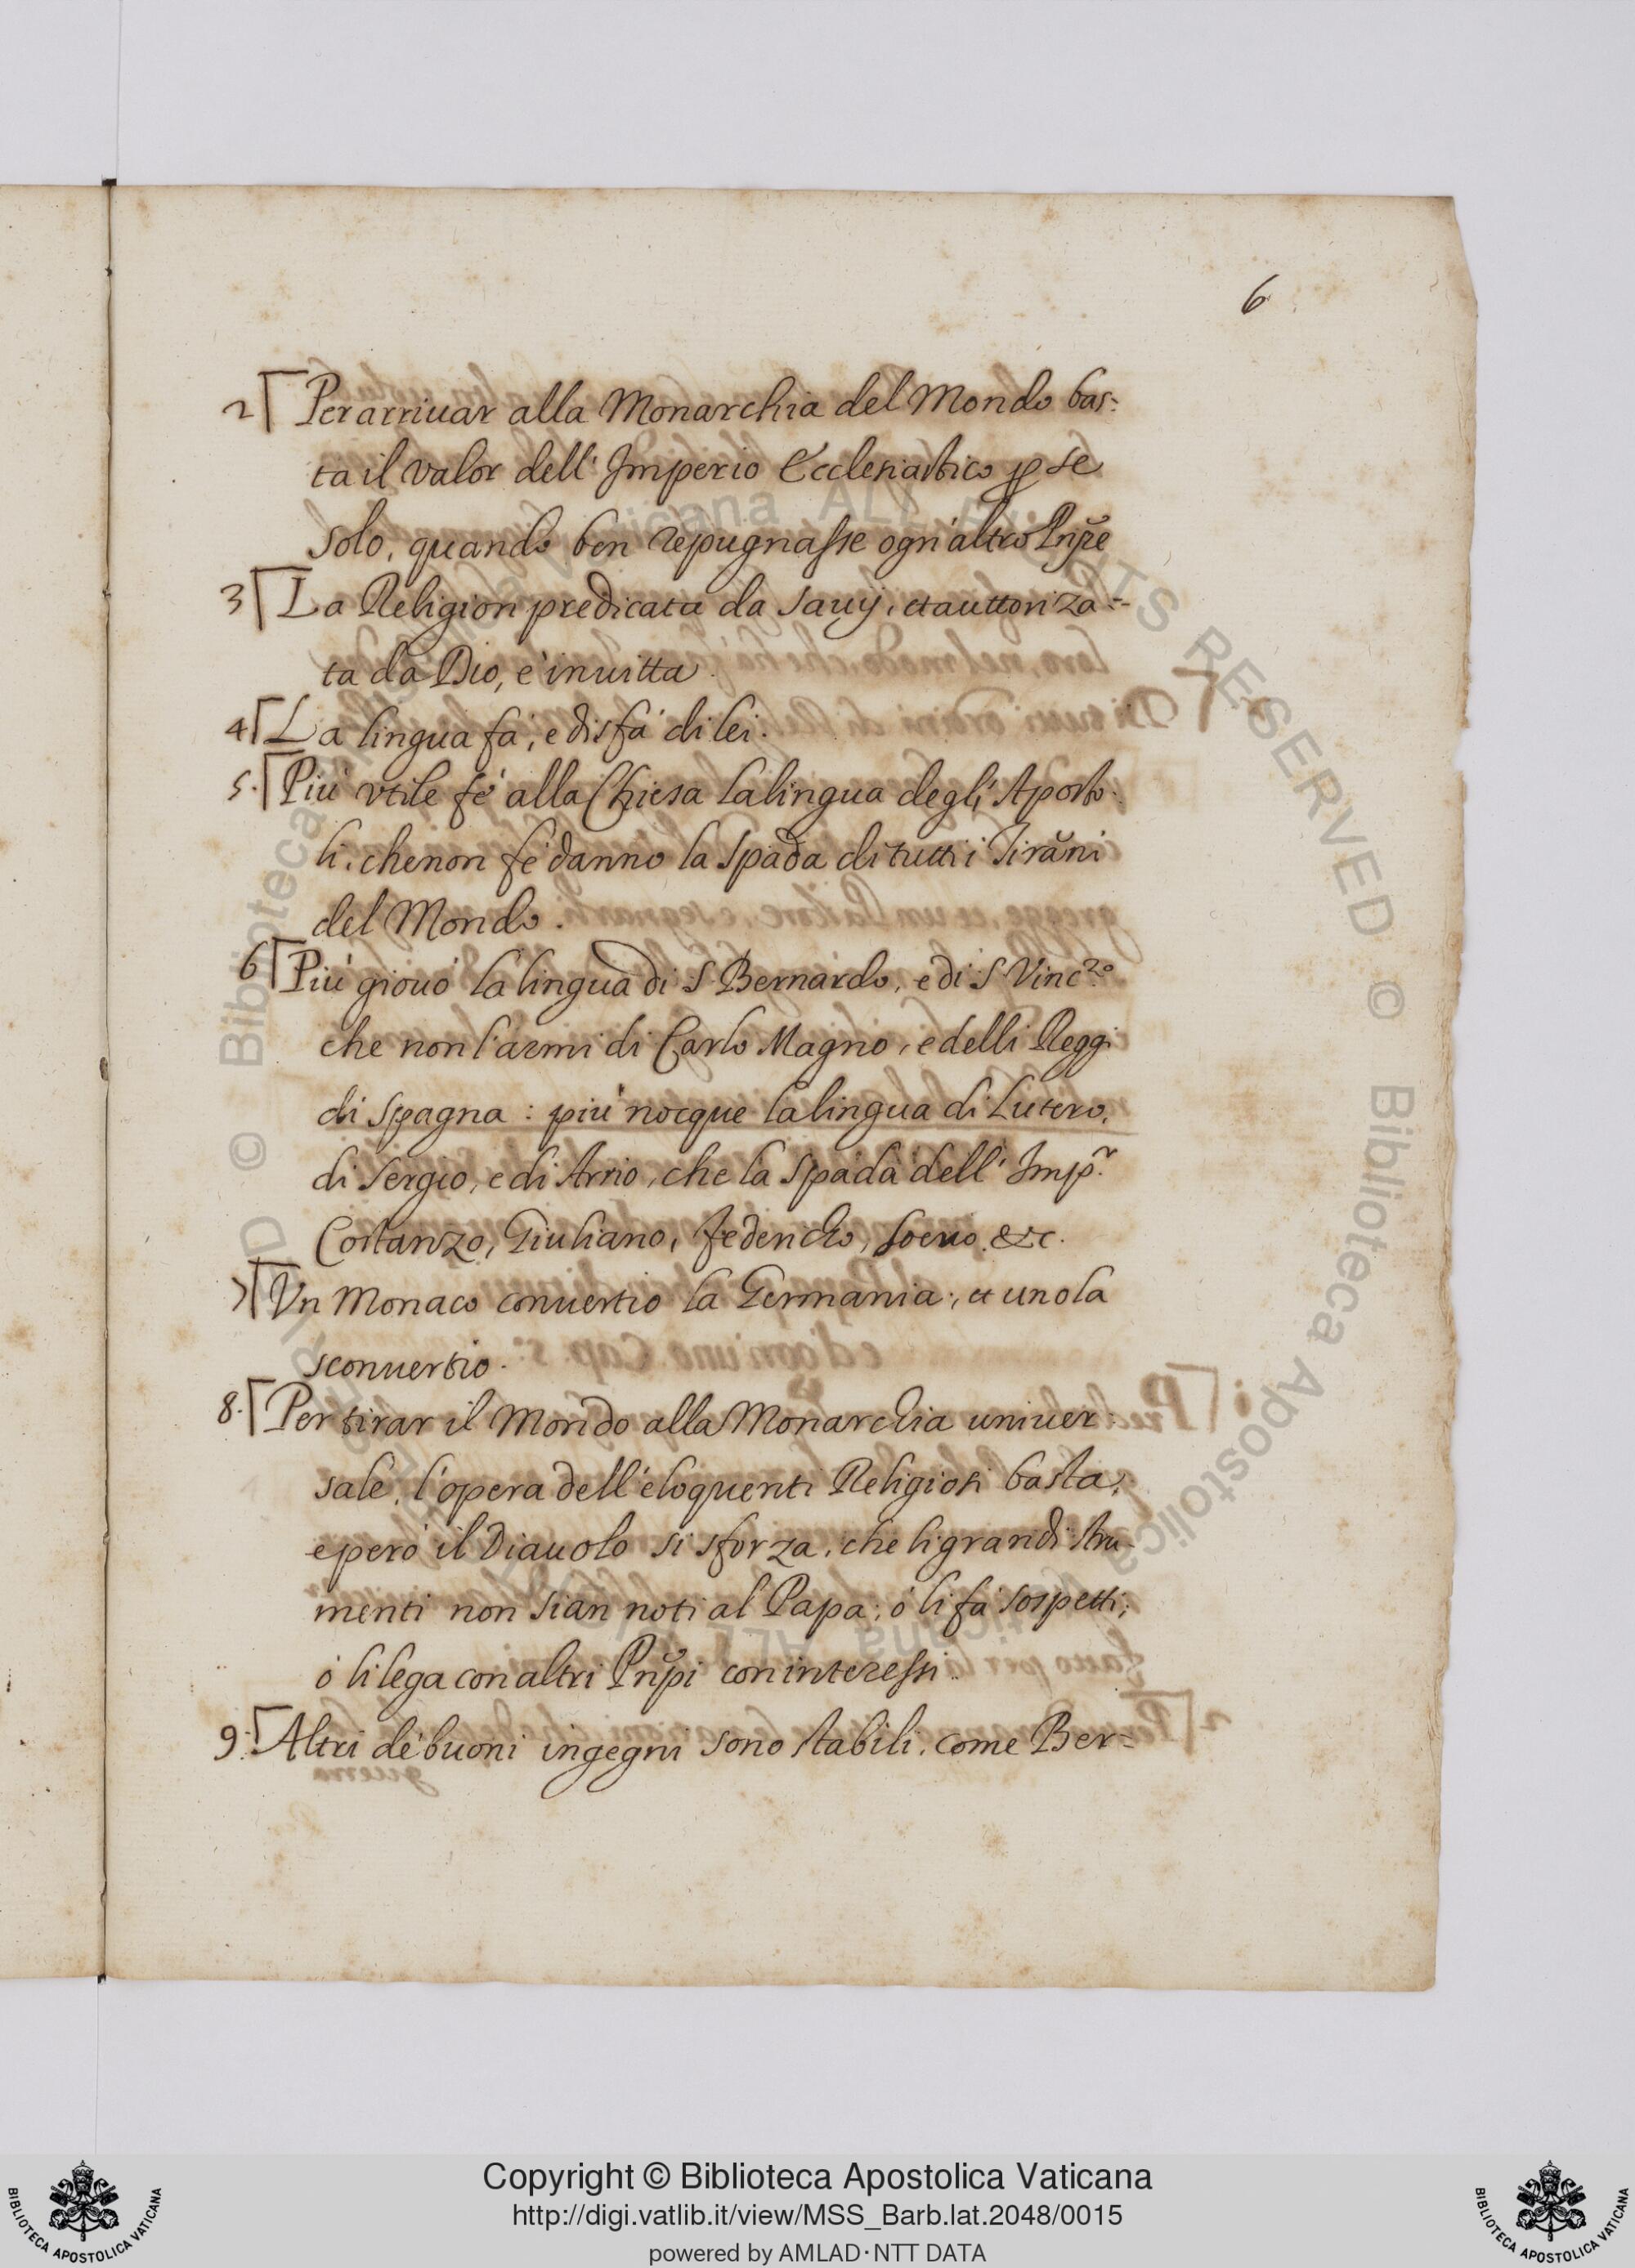 6
2 Per arriuar alla Monarchia del Mondo bas:
ta il valor dell' Imperio Ecclesiastico ꝑ se
solo, quando ben repugnasse ogn'altro Pnp̃e
3 La Religion predicata da Sauij, et auttoriza:-
ta da Dio, e' inuitta.
4 La lingua fa', e disfa' di lei.
5. Piu' vtile fe' alla Chiesa la lingua degl'Aposto.
li, che non fe' danno la Spada di tutti i Tirãni
del Mondo.
6 Piu' giouo' la lingua di S. Bernardo, e di S. Vinc.zo
che non l'armi di Carlo Magno, e delli Reggi
di Spagna: piu' nocque la lingua di Lutero,
di Sergio, e di Arrio, che la Spada dell' Imp.r
Costanzo, Giuliano, Federicho, Soeuo, &c.
7 Vn Monaco conuertio la Germania, et uno la
sconuertio.
8. Per tirar il Mondo alla Monarchia uniuer:
sale, l'opera dell'eloquenti Religiosi basta,
e pero' il Diauolo si sforza, che li grandi stru-
menti non sian noti al Papa; o' li fa' sospetti;
o' li lega con altri Pnp̃i con interessi.
9. Altri de' buoni ingegni sono stabili, come Ber-
Copyright © Biblioteca Apostolica Vaticana
http://digi.vatlib.it/view/MSS_Barb.lat.2048/0015
powered by AMLAD·NTT DATA
BIBLIOTECA APOSTOLICA VATICANA
BIBLIOTECA APOSTOLICA VATICANA